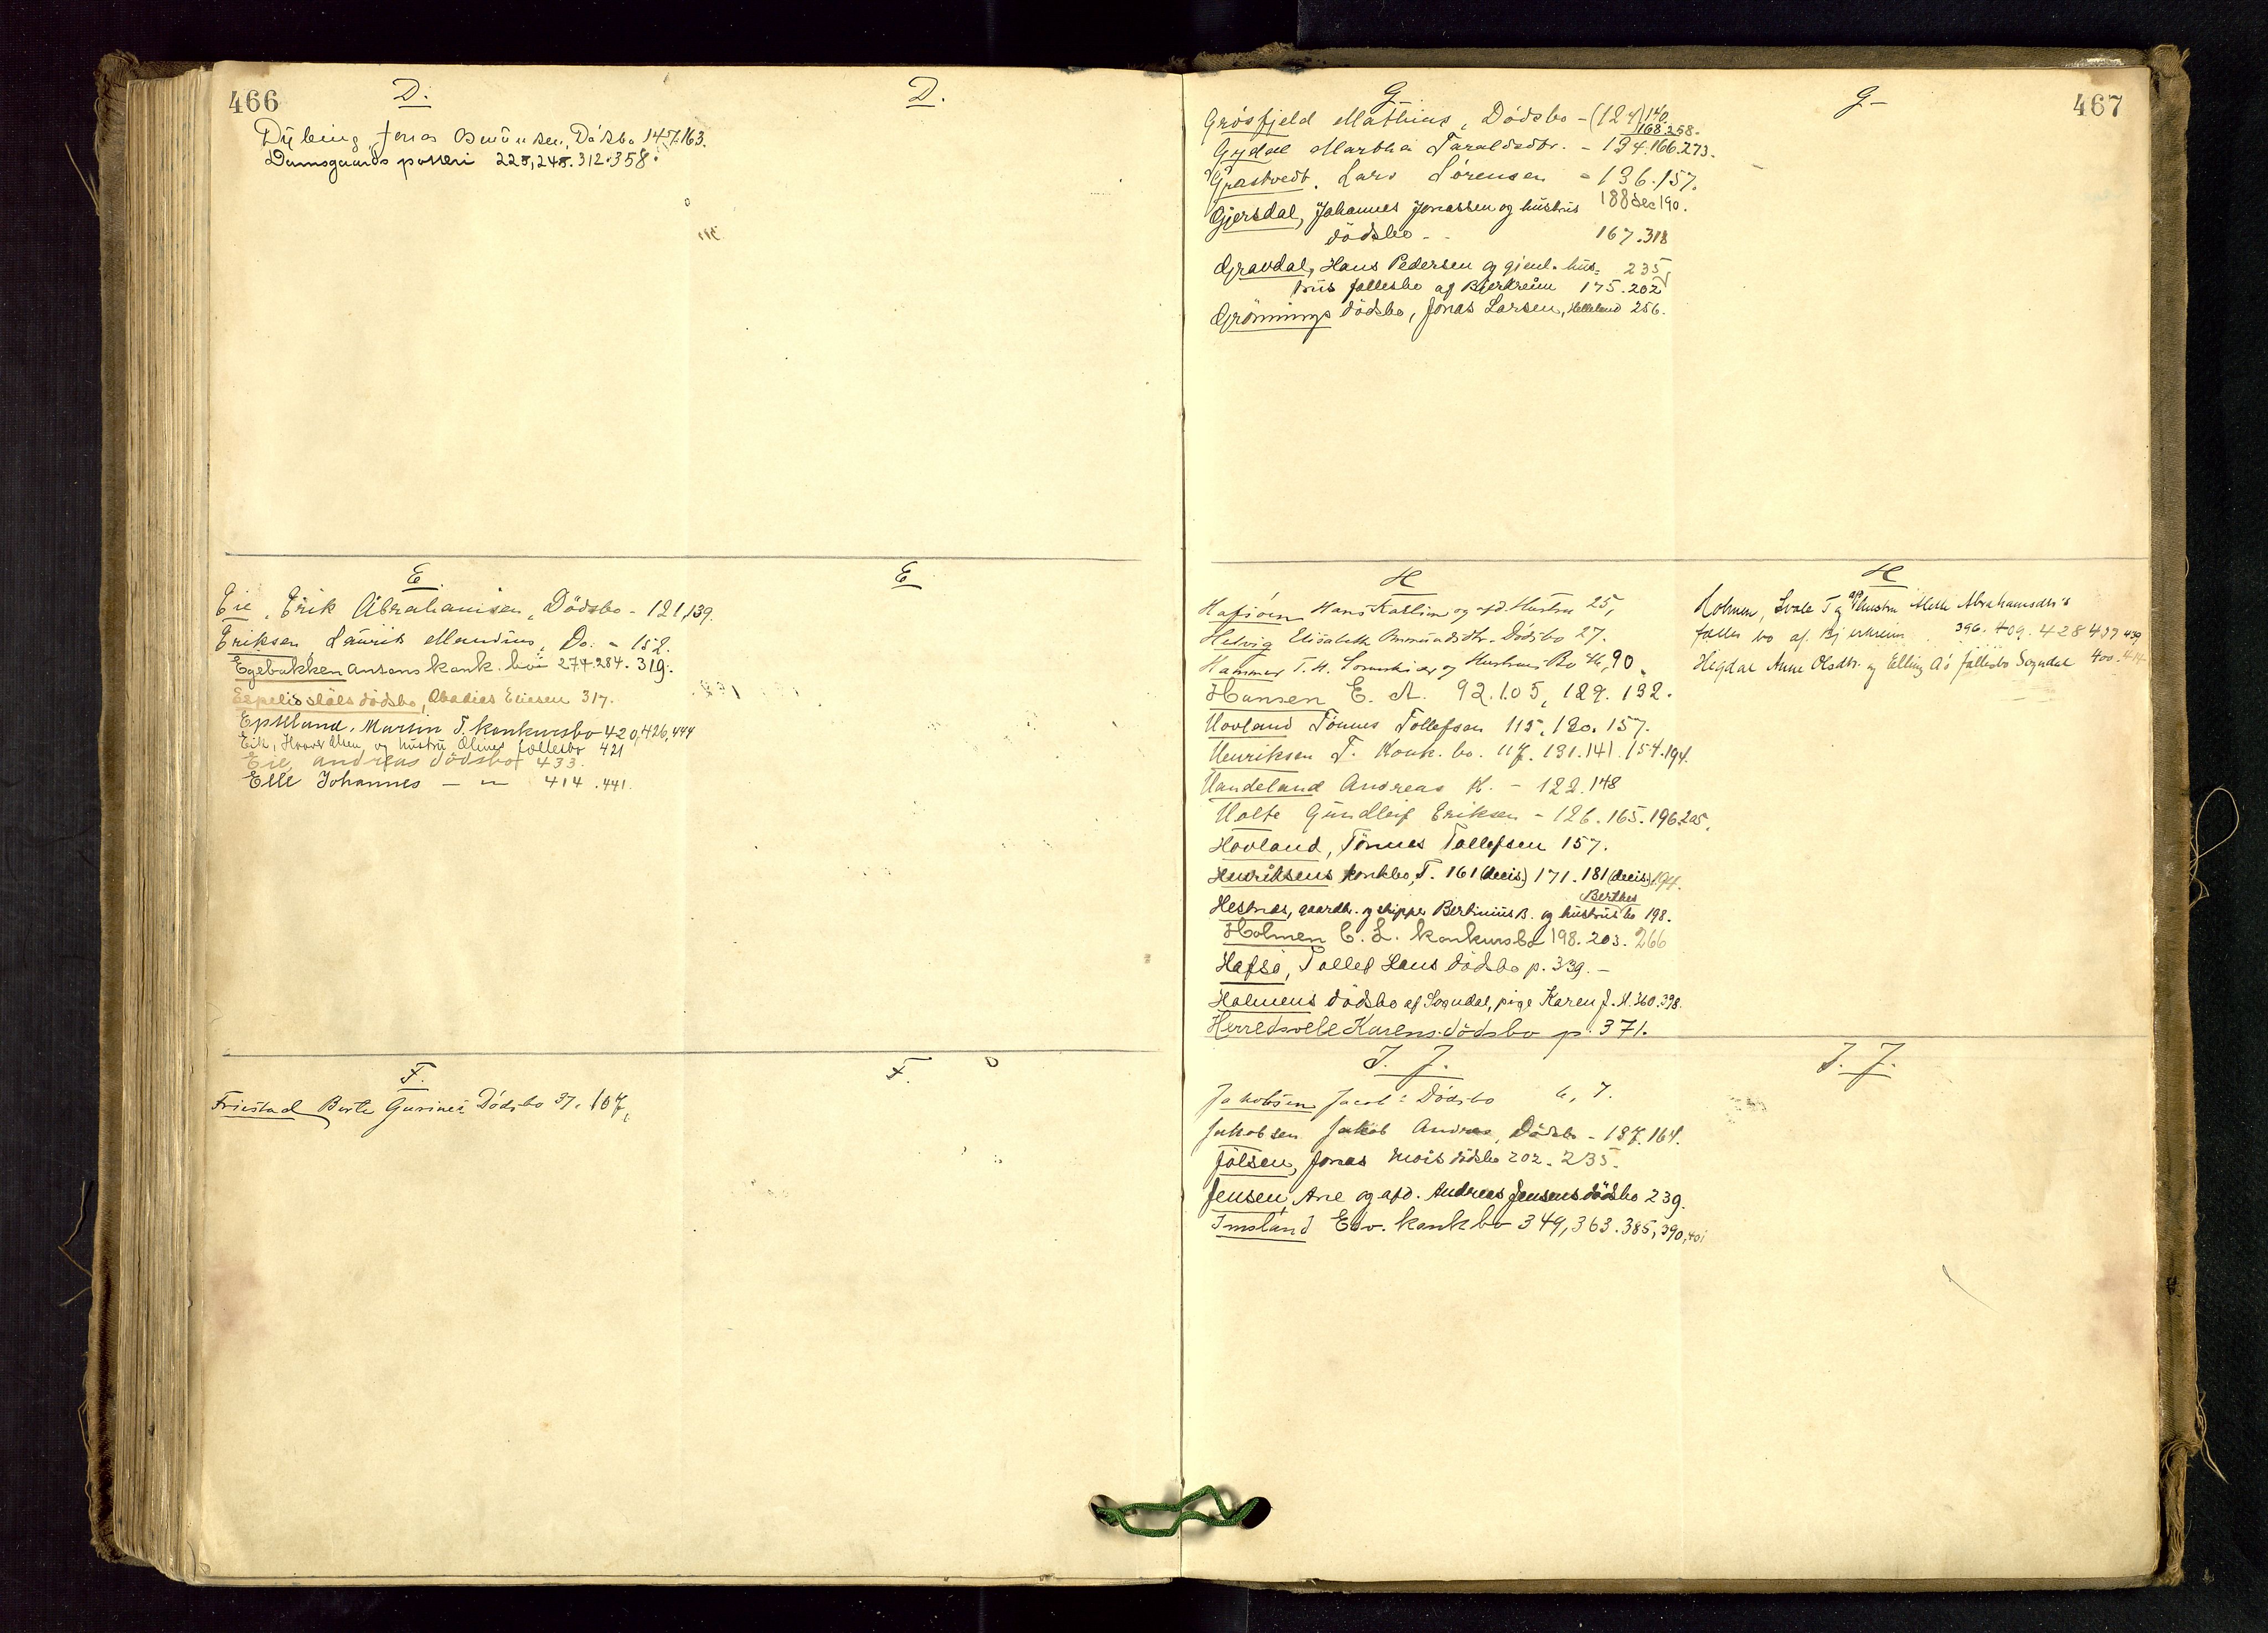 466
D.
D.
Dybing, Jonas Osmundsen, Dödsbo 147.163.
Damsgaards polleri 225, 245. 312. 358.
E.
E
Eie, Erik Abrahamsen, Dödsbo - 121,139.
Eriksen, Laurits Mandius, Do. - 152.
Egebakken Ansons konk. bo 274.284. 319.
Espelidslåts dödsbo, Abadias Eriesen 317.
Epteland, Martin T. konkursbo 420,426,444
Eik, Hover Olsen og hustru Olines fællesbo 421
Eie, Andreas dödsbo 433.
Elle Johannes — " — 414. 441.
F.
F.
Friestad Berte Gurine: Dödsbo 37. 107,
467
G.
G-
Grösfjeld Mathias, Dödsbo - (124) 140.
168.258.
Gydal Martha Taraldsdtr. - 134.166.273.
Grastvedt, Lars Sörensen - 136.157.
Gjersdal, Johannes Jonassen og hustrus 188 dec 190.
dödsbo - - 167.318
Gravdal, Hans Pedersen og gjenl. hus- 235,
trus fællesbo af Bjerkreim 175.202
Grönnings dödsbo, Jonas Larsen, Helleland 256.
H
H
Hafsöen Hans Karlsen og afd. Hustru 25,
Helvig Elisabeth Ommundsdtr. Dödsbo 27.
Hammer T. H. og Hustrus Bo 46, 90.
Hansen E. A. 92.105, 129. 132.
Hovland Tönnes Tollefsen 115, 120. 157.
Henriksen T. Konk. bo. 117. 131. 141. 154. 194.
Handeland Andreas K. - 122.148
Holte Gundleif Eriksen - 126. 165. 196.205,
Hovland, Tönnes Tallefsen 157.
Henriksens konkbo, T. 161 (decis) 171. 181 (decis) 194.
Berthes
Hestnes, gaardbr. og skipper Bertinius B. og hustrus bo 198.
Holmen C. L. konkursbo 198. 203. 266
Hafsö, Tollef Hans dödsbo p. 339. -
Holmens dödsbo af Sogndal, pige Karen J. H. 360.398.
Herredsvele Karens dödsbo p. 371.
Holmen, Svale T og afd hustru Mette Abrahamsdtr's
fælles bo af Bjerkreim 396. 409. 428 437 439
Hegdal Anne Olsdtr. og Elling A's fællesbo Sogndal 400. 414
I. J.
I. J.
Jakobsen Jacob: Dödsbo 6, 7.
Jakobsen Jakob Andreas, Dödsbo - 137.164.
Jölsen, Jonas Mois dödsbo 202. 235.
Jensen, Ane og afd. Andreas Jensens dödsbo 239.
Imsland Edv. konkbo 349, 363. 385, 390, 401